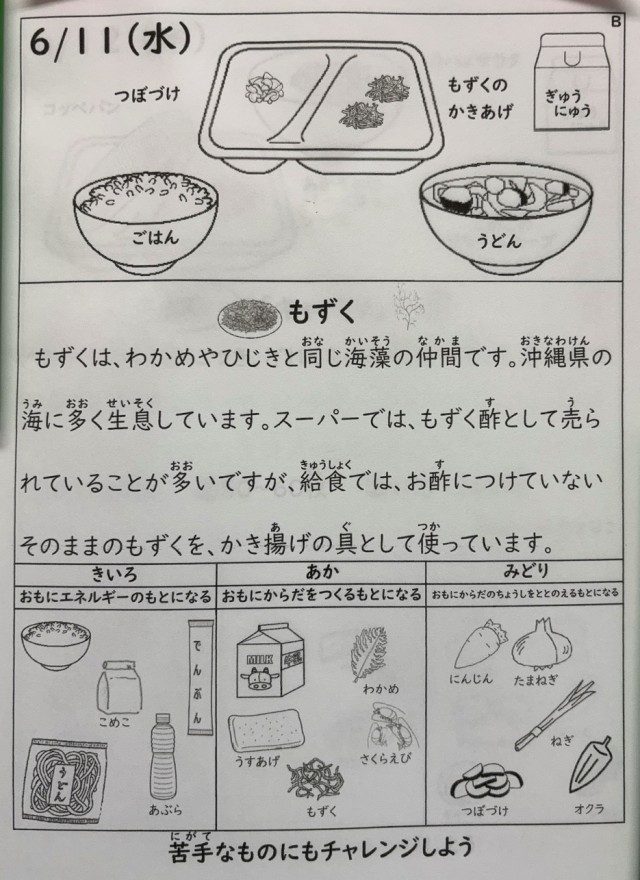 B
6/11(水)
つぼづけ
もずくの
かきあげ
ぎゅう
にゅう
ごはん
うどん
もずく
もずくは、わかめやひじきと同じ海藻の仲間です。沖縄県の
おな かいそう なかま おきなわけん
海に多く生息しています。スーパーでは、もずく酢として売ら
うみ おお せいそく す う
れていることが多いですが、給食では、お酢につけていない
おお きゅうしょく す
そのままのもずくを、かき揚げの具として使っています。
あ ぐ つか
きいろ
おもにエネルギーのもとになる
でんぷん
こめこ
うどん
あぶら
あか
おもにからだをつくるもとになる
MILK
わかめ
うすあげ
さくらえび
もずく
みどり
おもにからだのちょうしをととのえるもとになる
にんじん
たまねぎ
ねぎ
つぼづけ
オクラ
苦手なものにもチャレンジしよう
にがて